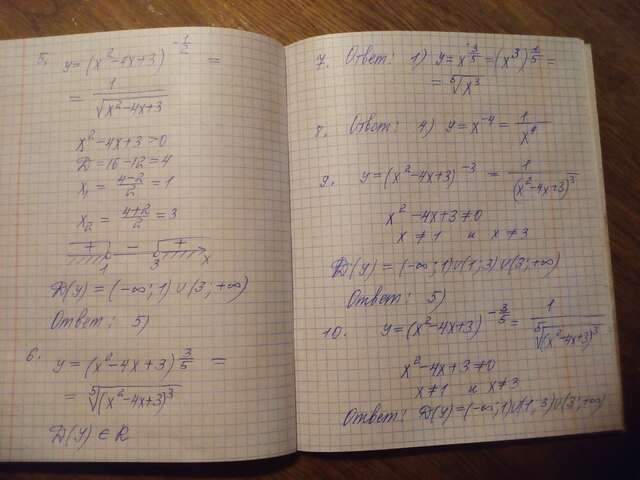 5. y = (x² - 4x + 3)^(-1/2) =
= 1/√(x² - 4x + 3)
x² - 4x + 3 > 0
D = 16 - 12 = 4
x₁ = (4-2)/2 = 1
x₂ = (4+2)/2 = 3
+ - +
1 3 x
D(y) = (-∞; 1) ∪ (3; +∞)
Ответ: 5)
6. y = (x² - 4x + 3)^(3/5) =
= ⁵√((x² - 4x + 3)³)
D(y) ∈ R
7. Ответ: 1) y = x^(3/5) = (x³)^(1/5) =
= ⁵√(x³)
8. Ответ: 4) y = x⁻⁴ = 1/x⁴
9. y = (x² - 4x + 3)⁻³ = 1/(x² - 4x + 3)³
x² - 4x + 3 ≠ 0
x ≠ 1 и x ≠ 3
D(y) = (-∞; 1) ∪ (1; 3) ∪ (3; +∞)
Ответ: 5)
10. y = (x² - 4x + 3)^(-3/5) = 1/⁵√((x² - 4x + 3)³)
x² - 4x + 3 ≠ 0
x ≠ 1 и x ≠ 3
Ответ: D(y) = (-∞; 1) ∪ (1; 3) ∪ (3; +∞)